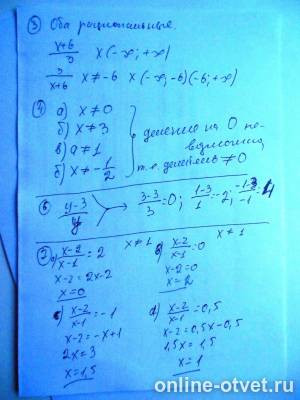 ③ Оба рациональные.
x+6/3 x(-∞;+∞)
3/x+6 x≠-6 x(-∞,-6)(-6;+∞)
④ а) x≠0
б) x≠3
в) a≠1
б) x≠-1/2
деление на 0 невозможно
т.е. делитель ≠0
⑥ y-3/y → 3-3/3=0; 1-3/1=-2; -1-3/-1=4
⑦ а) x-2/x-1=2 x≠1
x-2=2x-2
x=0
б) x-2/x-1=0 x≠1
x-2=0
x=2
в) x-2/x-1=-1
x-2=-x+1
2x=3
x=1,5
x-2/x-1=0,5
x-2=0,5x-0,5
1,5x=1,5
x=1
online-otvet.ru